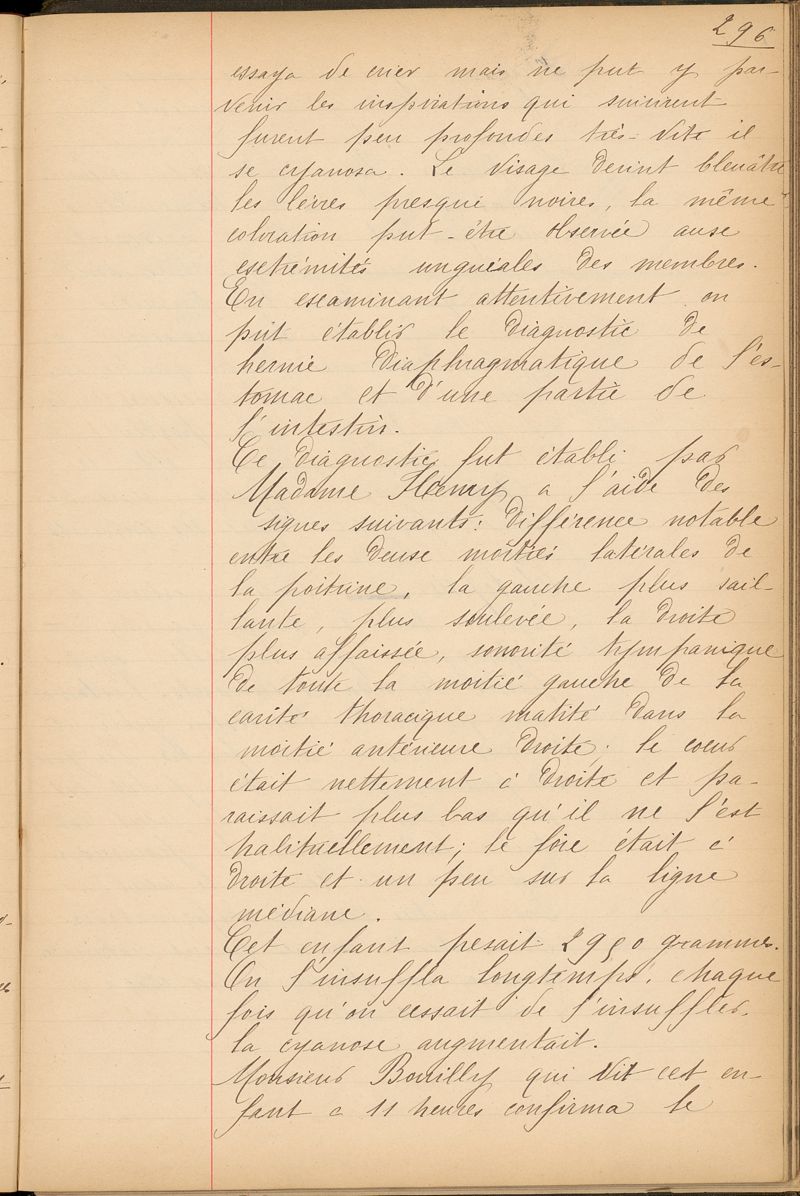 296
essaya de crier mais ne put y par-
venir les inspirations qui suivirent
furent peu profondes très-vite il
se cyanosa. Le visage devint bleuâtre
les lèvres presque noires, la même
coloration put-être observée aux
extrémités unguéales des membres.
En examinant attentivement on
put établir le diagnostic de
hernie diaphragmatique de l'es-
tomac et d'une partie de
l'intestin.
Ce diagnostic fut établi par
Madame Henry a l'aide des
signes suivants: différence notable
entre les deux moitiés latérales de
la poitrine, la gauche plus sail-
lante, plus soulevée, la droite
plus affaissée, sonorité tympanique
de toute la moitié gauche de la
cavité thoracique matité dans la
moitié antérieure droite; le coeur
était nettement à droite et pa-
raissait plus bas qu'il ne l'est
habituellement; le foie était à
droite et un peu sur la ligne
médiane.
Cet enfant pesait 2950 grammes.
On l'insuffla longtemps, chaque
fois qu'on cessait de l'insuffler,
la cyanose augmentait.
Monsieur Bouilly qui vit cet en-
fant a 11 heures confirma le